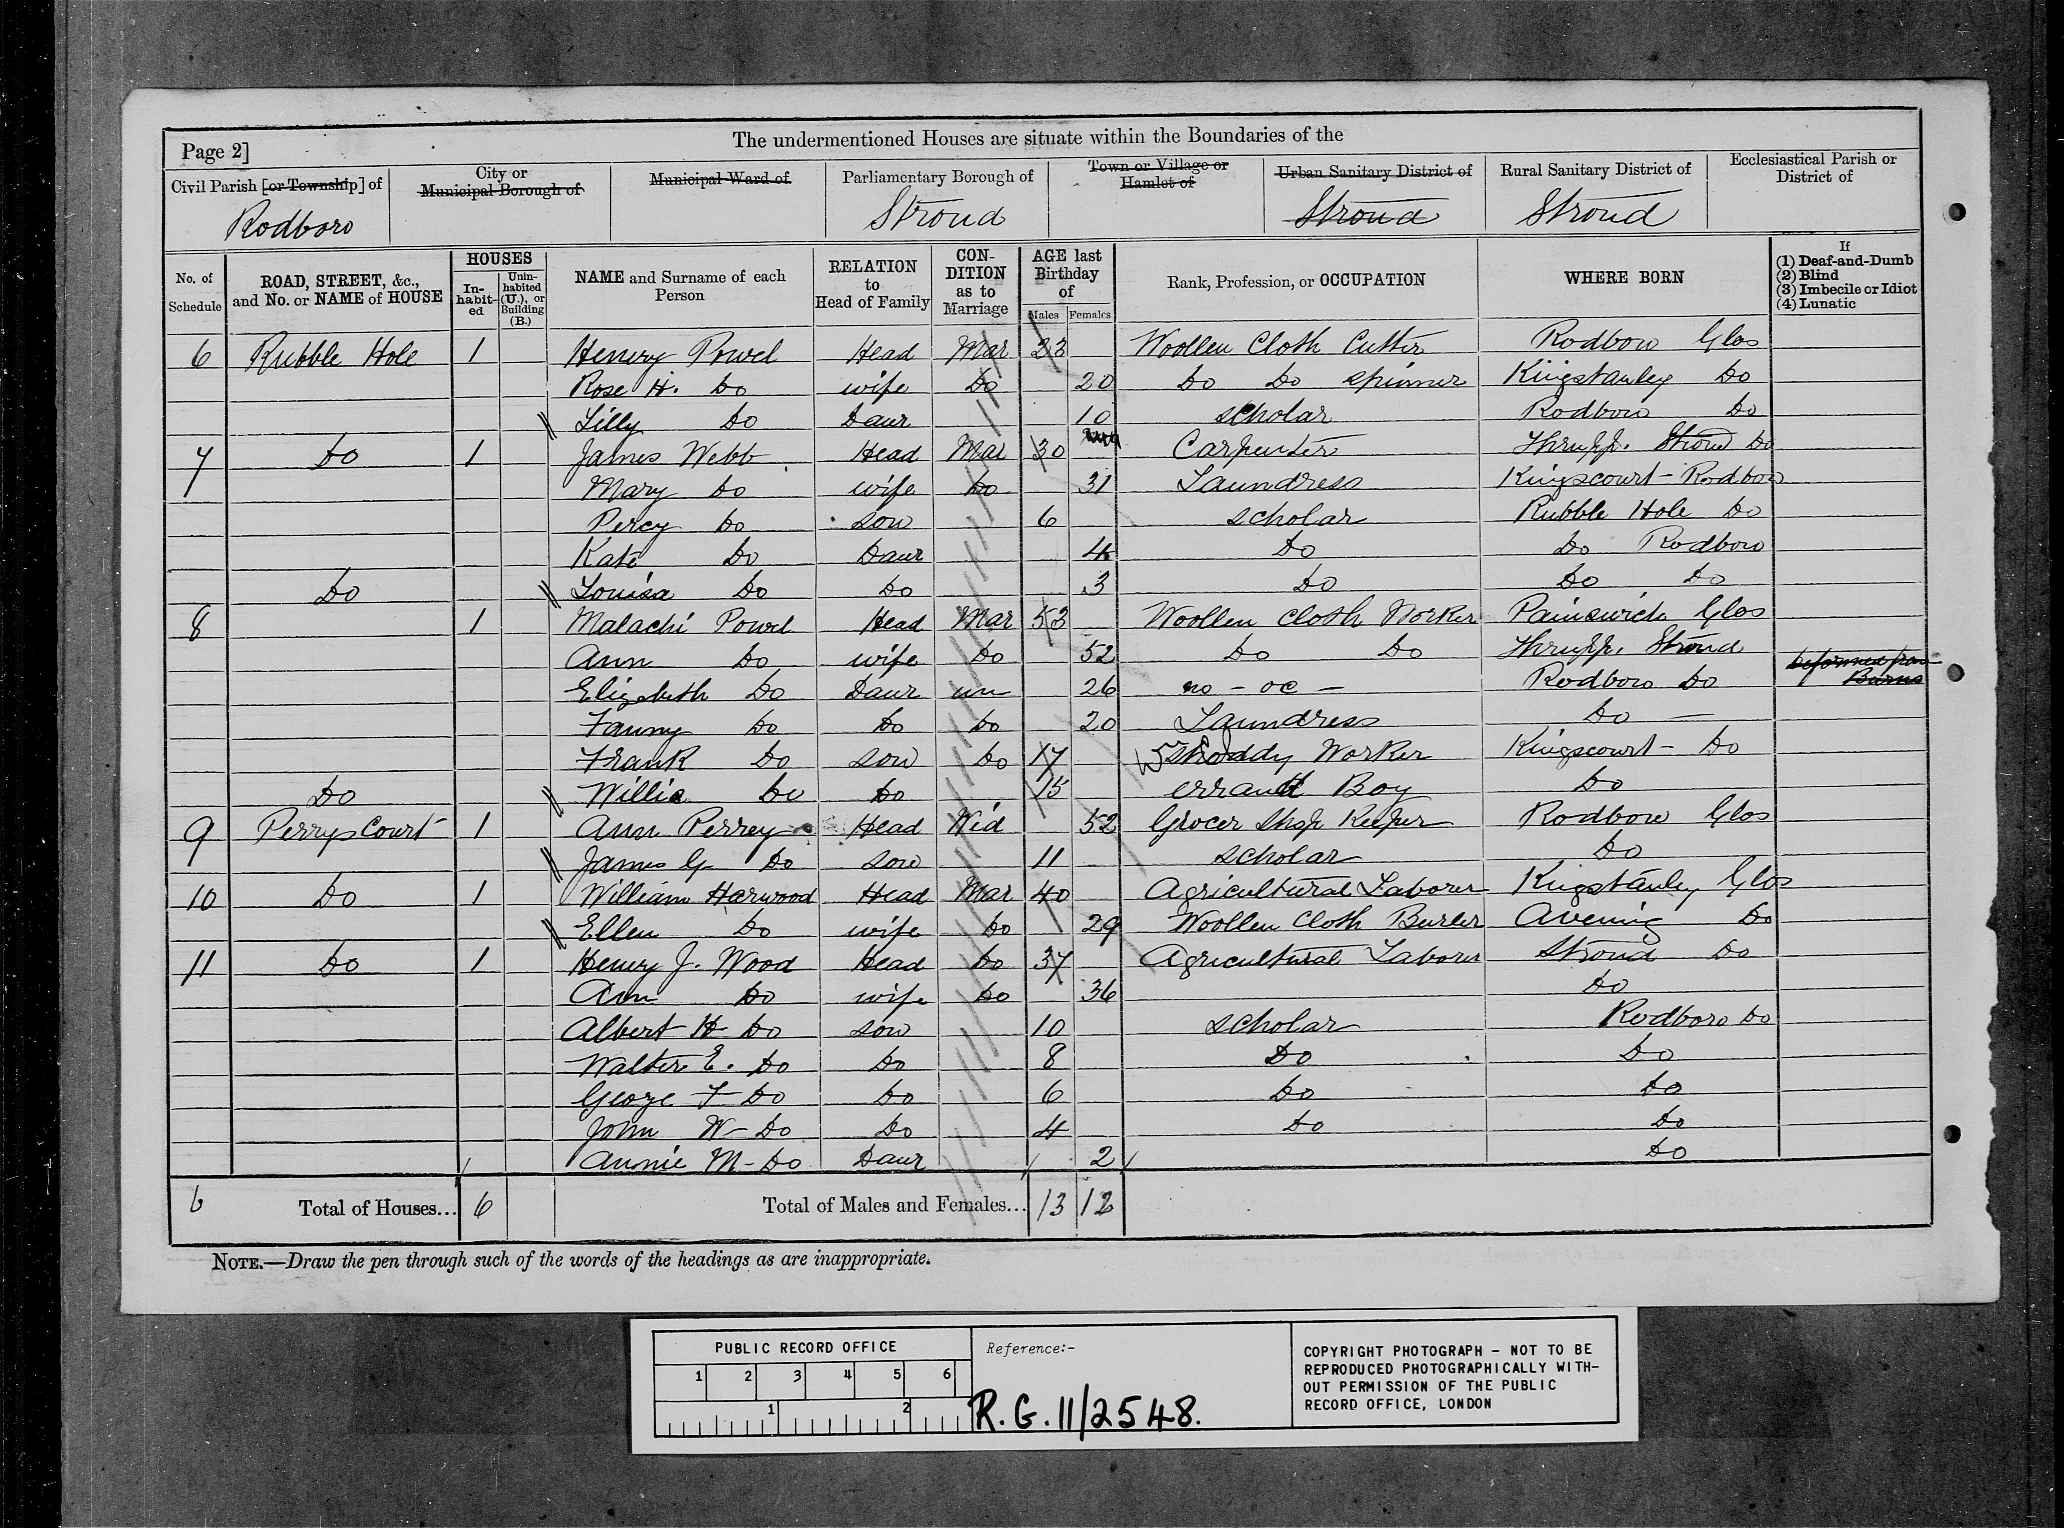 The undermentioned Houses are situate within the Boundaries of the
Page 2]
Civil Parish [or Township] of
City or Municipal Borough of
Municipal Ward of
Parliamentary Borough of
Town or Village or Hamlet of
Urban Sanitary District of
Rural Sanitary District of
Ecclesiastical Parish or District of
Rodboro Stroud Stroud Stroud
No. of Schedule
ROAD, STREET, &c., and No. or NAME of HOUSE
HOUSES
In-habit-ed
Unin-habited (U.), or Building (B.)
NAME and Surname of each Person
RELATION to Head of Family
CON-DITION as to Marriage
AGE last Birthday of
Males Females
Rank, Profession, or OCCUPATION
WHERE BORN
If
(1) Deaf-and-Dumb
(2) Blind
(3) Imbecile or Idiot
(4) Lunatic
6 Rubble Hole 1 Henery Powel Head Mar 23 Woollen Cloth Cutter Rodboro Glos
Rose H. Do wife Do 20 Do Do spinner Kingstanley Do
Lilly Do Daur 10 scholar Rodboro Do
7 Do 1 James Webb Head Mar 30 Carpenter Thrupp. Stroud Do
Mary Do wife Do 31 Laundress Kingscourt - Rodboro
Percy Do son 6 scholar Rubble Hole Do
Kate Do Daur 4 Do Do Rodboro
Do Louisa Do Do 3 Do Do Do
8 1 Malachi Powel Head Mar 53 Woollen Cloth Worker Painswick Glos
Ann Do wife Do 52 Do Do Thrupp. Stroud
Elizabeth Do Daur un 26 no - oc - Rodboro Do deformed from Burns
Fanny Do Do Do 20 Laundress Do —
Frank Do son Do 17 Shoddy Worker Kingscourt - Do
Do Willie Do Do 15 errand Boy Do
9 Perrys Court 1 Ann Perrey Head Wid 52 Grocer Shop Keeper Rodboro Glos
James G Do son 11 scholar Do
10 Do 1 William Harwood Head Mar 40 Agricultural Laborer Kingstanley Glos
Ellen Do wife Do 29 Woollen Cloth Burler Avening Do
11 Do 1 Henry J. Wood Head Do 37 Agricultural Laborer Stroud Do
Ann Do wife Do 36 Do
Albert H Do son 10 scholar Rodboro Do
Walter E. Do Do 8 Do Do
George F Do Do 6 Do Do
John W - Do Do 4 Do Do
Annie M - Do Daur 2 Do
6 Total of Houses... 6 Total of Males and Females... 13 12
NOTE.—Draw the pen through such of the words of the headings as are inappropriate.
PUBLIC RECORD OFFICE
1 2 3 4 5 6
1 2
Reference:-
R.G. 11/2548.
COPYRIGHT PHOTOGRAPH - NOT TO BE
REPRODUCED PHOTOGRAPHICALLY WITH-
OUT PERMISSION OF THE PUBLIC
RECORD OFFICE, LONDON